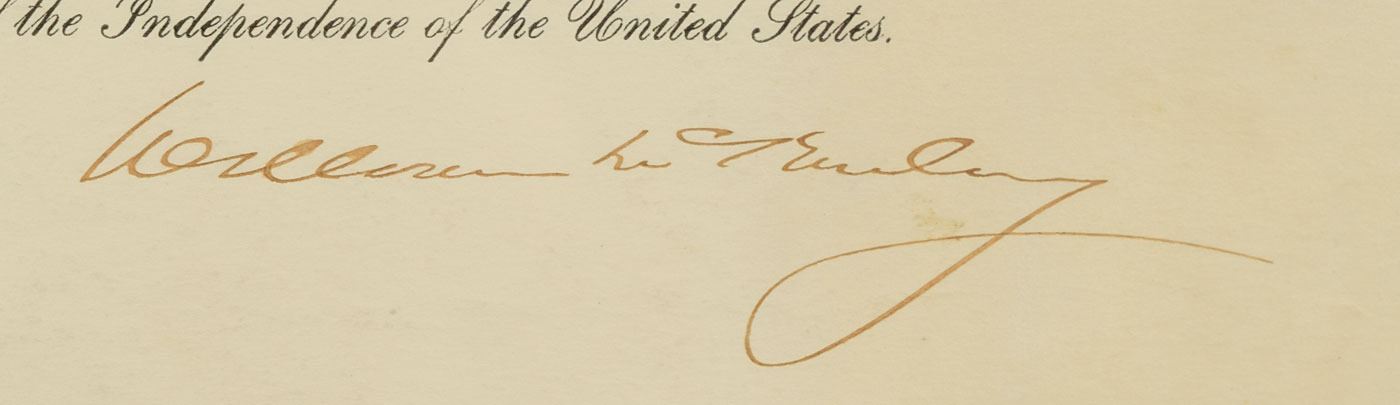 the Independence of the United States.
William McKinley